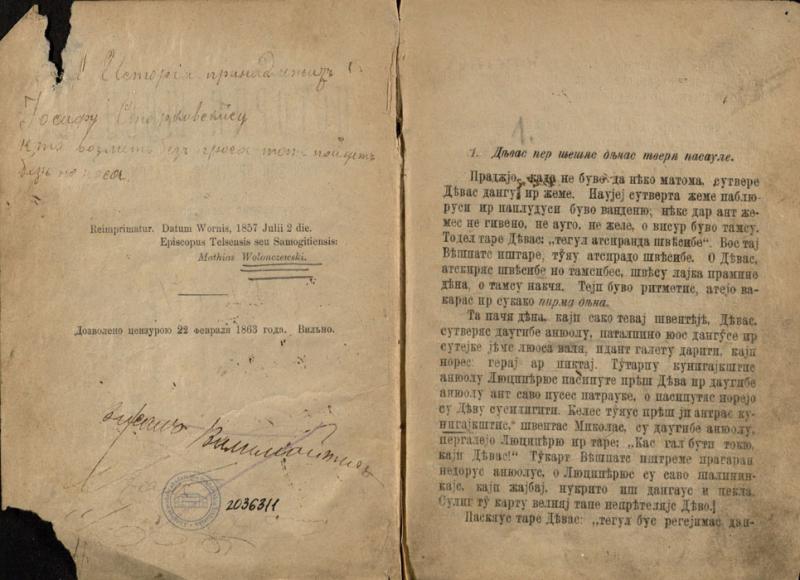 Исторія принадлежитъ
Іосифу
кто возметъ безъ проса тотъ пойдетъ
безъ носа.
Reimprimatur. Datum Wornis, 1857 Julii 2 die.
Episcopus Telsensis seu Samogitiensis:
Mathias Wolonczewski.
Дозволено цензурою 22 февраля 1863 года. Вильно.
2036311
1.
1. Дѣвас пер шешис дѣнас твери пасауле.
Праджіо, када не буво да нѣко матома, сутвере
Дѣвас дангу ир жеме. Науjеj сутверта жеме паблю-
руси ир паплудуси буво ванденю; нѣкс дар ант же-
мес не гивено, не ауго, не желе, о висур буво тамсу.
Тодел таре Дѣвас: „тегул атсиранда швѣсибе“. Вос таj
Вѣшпатс иштаре, туяу атсирадо швѣсибе. О Дѣвас,
атскиряс швѣсибе но тамсибес, швѣсу лаjка праминe
дѣна, о тамсу накчя. Теjп буво ритметис, атеjо ва-
карас ир сукако пирма дѣна.
Та пачя дѣна, каjп сако теваj швентѣjѣ, Дѣвас,
сутверяс даугибе анюолу, паталпино юос дангусе ир
сутеjке jѣмс люоса валя, идант галету дарити, каjп
норес: гераj ар пиктаj. Тутарпу кунигаjкштис
анюолу Люципѣрюс пасипуте прѣш Дѣва ир даугибе
анюолу ант саво пусес патрауке, о пасипутяс нореjо
су Дѣву сусилигити. Келес туяус прѣш jи антрас ку-
нигаjкштис, швентас Миколас, су даугибе анюолу,
пергалеjо Люципѣрю ир таре: „Кас гал бути токю,
каjп Дѣвас!“ Тукарт Вѣшпатс иштреме прагаран
недорус анюолус, о Люципѣрюс су саво шалинин-
каjс, каjп жаjбаj, нукрито иш дангаус и пекла.
Сулиг ту карту велняj тапе непрѣтеляjс Дѣво.
Паскяус таре Дѣвас: „тегул бус регеjимас дан-